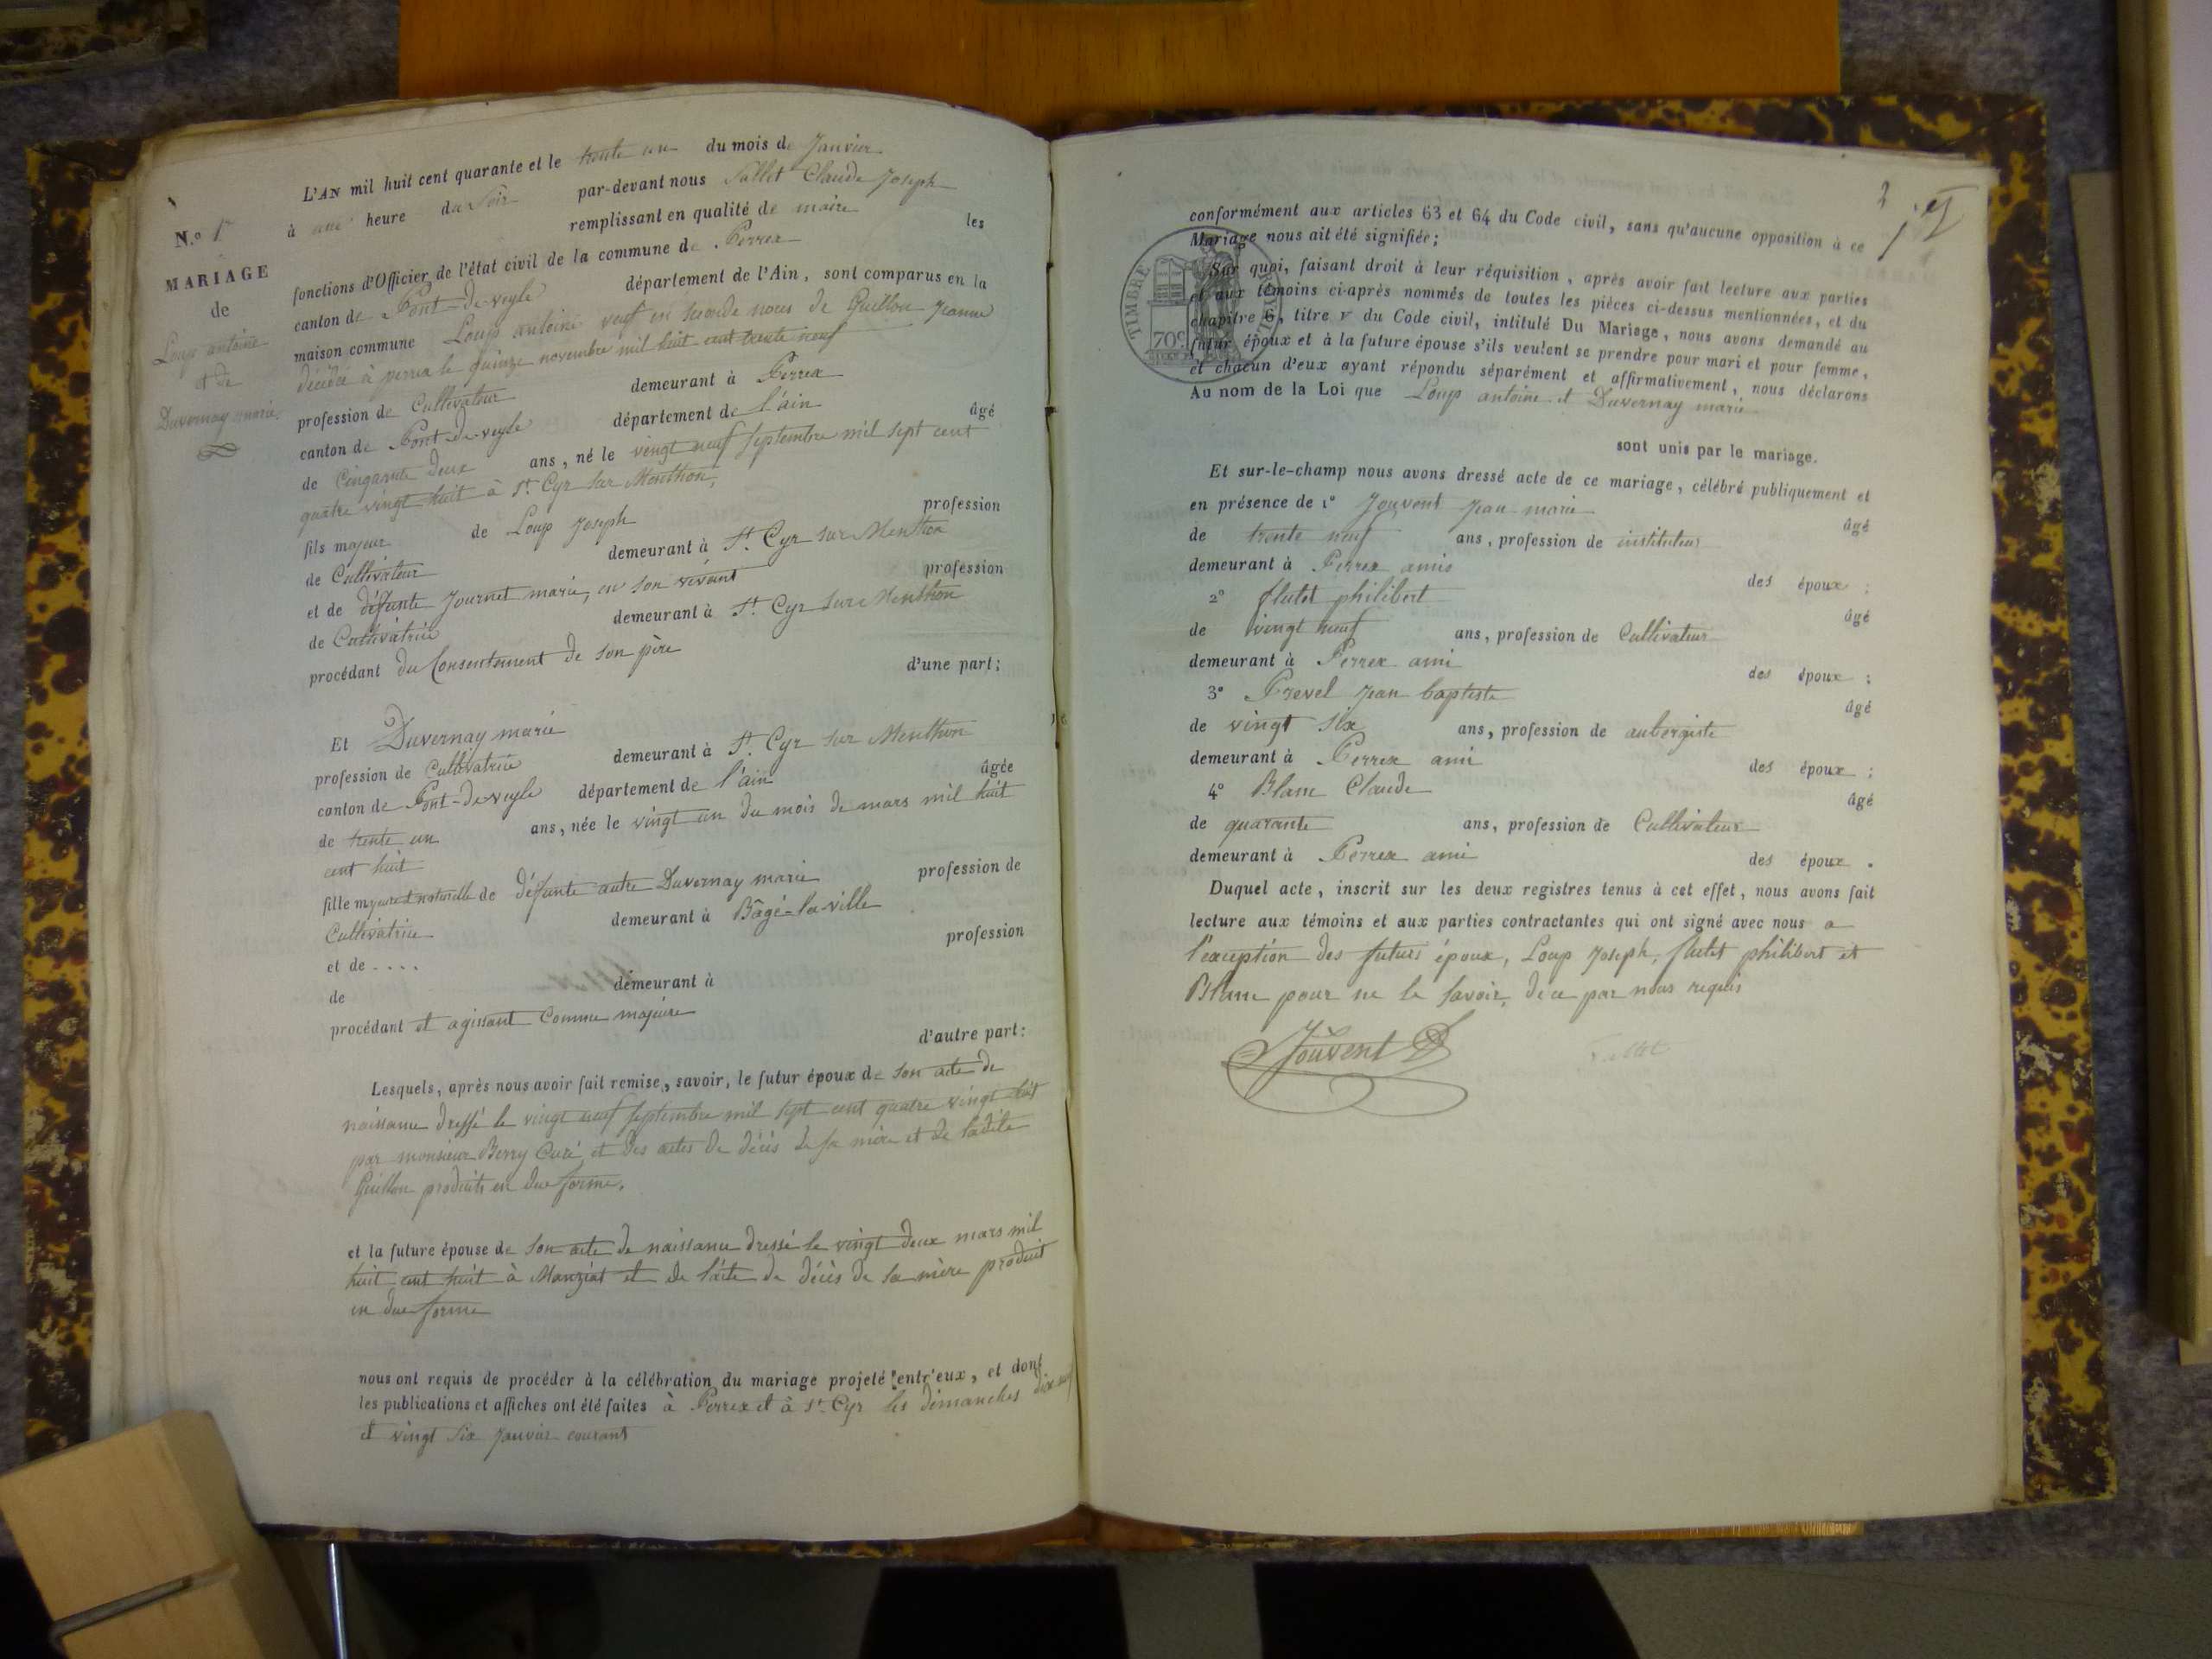 N.º 1er
MARIAGE
de
Loup antoine
et de
Duvernay marie
L'AN mil huit cent quarante et le trente un du mois de Janvier
à une heure du Soir par-devant nous Sallet Claude Joseph
remplissant en qualité de maire les
fonctions d'Officier de l'état civil de la commune de Perrex
canton de Pont-de-veyle département de l'Ain, sont comparus en la
maison commune Loup antoine veuf en seconde noces de Guillon Jeanne
décédée à perrex le quinze novembre mil huit cent trente neuf
profession de Cultivateur demeurant à Perrex
canton de Pont-de-veyle département de l'ain âgé
de Cinquante deux ans, né le vingt neuf Septembre mil sept cent
quatre vingt huit à St. Cyr sur Menthon,
fils majeur de Loup Joseph profession
de Cultivateur demeurant à St. Cyr sur Menthon
et de défunte Journet marie, en son vivant profession
de Cultivatrice demeurant à St. Cyr sur Menthon
procédant du Consentement de son père d'une part;
Et Duvernay marie
profession de Cultivatrice demeurant à St. Cyr sur Menthon
canton de Pont-de-veyle département de l'ain âgée
de trente un ans, née le vingt un du mois de mars mil huit
cent huit
fille majeure et naturelle de défunte autre Duvernay marie profession de
Cultivatrice demeurant à Bâgé-la-ville
et de .... profession
de demeurant à
procédant et agissant Comme majeure d'autre part:
Lesquels, après nous avoir fait remise, savoir, le futur époux de son acte de
naissance dressé le vingt neuf Septembre mil sept cent quatre vingt huit
par monsieur Berry Curé, et des actes de décès de sa mère et de ladite
Guillon produits en due forme.
et la future épouse de son acte de naissance dressé le vingt deux mars mil
huit cent huit à Manziat et de l'acte de décès de sa mère produit
en due forme
nous ont requis de procéder à la célébration du mariage projeté entr'eux, et dont
les publications et affiches ont été faites à Perrex et à St. Cyr les dimanches dix neuf
et vingt six Janvier courant
2
conformément aux articles 63 et 64 du Code civil, sans qu'aucune opposition à ce
Mariage nous ait été signifiée;
TIMBRE ROYAL
70c
Sur quoi, faisant droit à leur réquisition, après avoir fait lecture aux parties
et aux témoins ci-après nommés de toutes les pièces ci-dessus mentionnées, et du
chapitre 6, titre v du Code civil, intitulé Du Mariage, nous avons demandé au
futur époux et à la future épouse s'ils veulent se prendre pour mari et pour femme,
et chacun d'eux ayant répondu séparément et affirmativement, nous déclarons
Au nom de la Loi que Loup antoine et Duvernay marie
sont unis par le mariage.
Et sur-le-champ nous avons dressé acte de ce mariage, célébré publiquement et
en présence de 1º Jouvent Jean marie
de trente neuf ans, profession de instituteur âgé
demeurant à Perrex amis des époux;
2º flutet philibert
de vingt neuf ans, profession de Cultivateur âgé
demeurant à Perrex ami des époux;
3º Prevel Jean baptiste
de vingt six ans, profession de aubergiste âgé
demeurant à Perrex ami des époux;
4º Blanc Claude
de quarante ans, profession de Cultivateur âgé
demeurant à Perrex ami des époux.
Duquel acte, inscrit sur les deux registres tenus à cet effet, nous avons fait
lecture aux témoins et aux parties contractantes qui ont signé avec nous a
l'exception des futurs époux, Loup Joseph, flutet philibert et
Blanc pour ne le Savoir, de ce par nous requis
Jouvent
Sallet